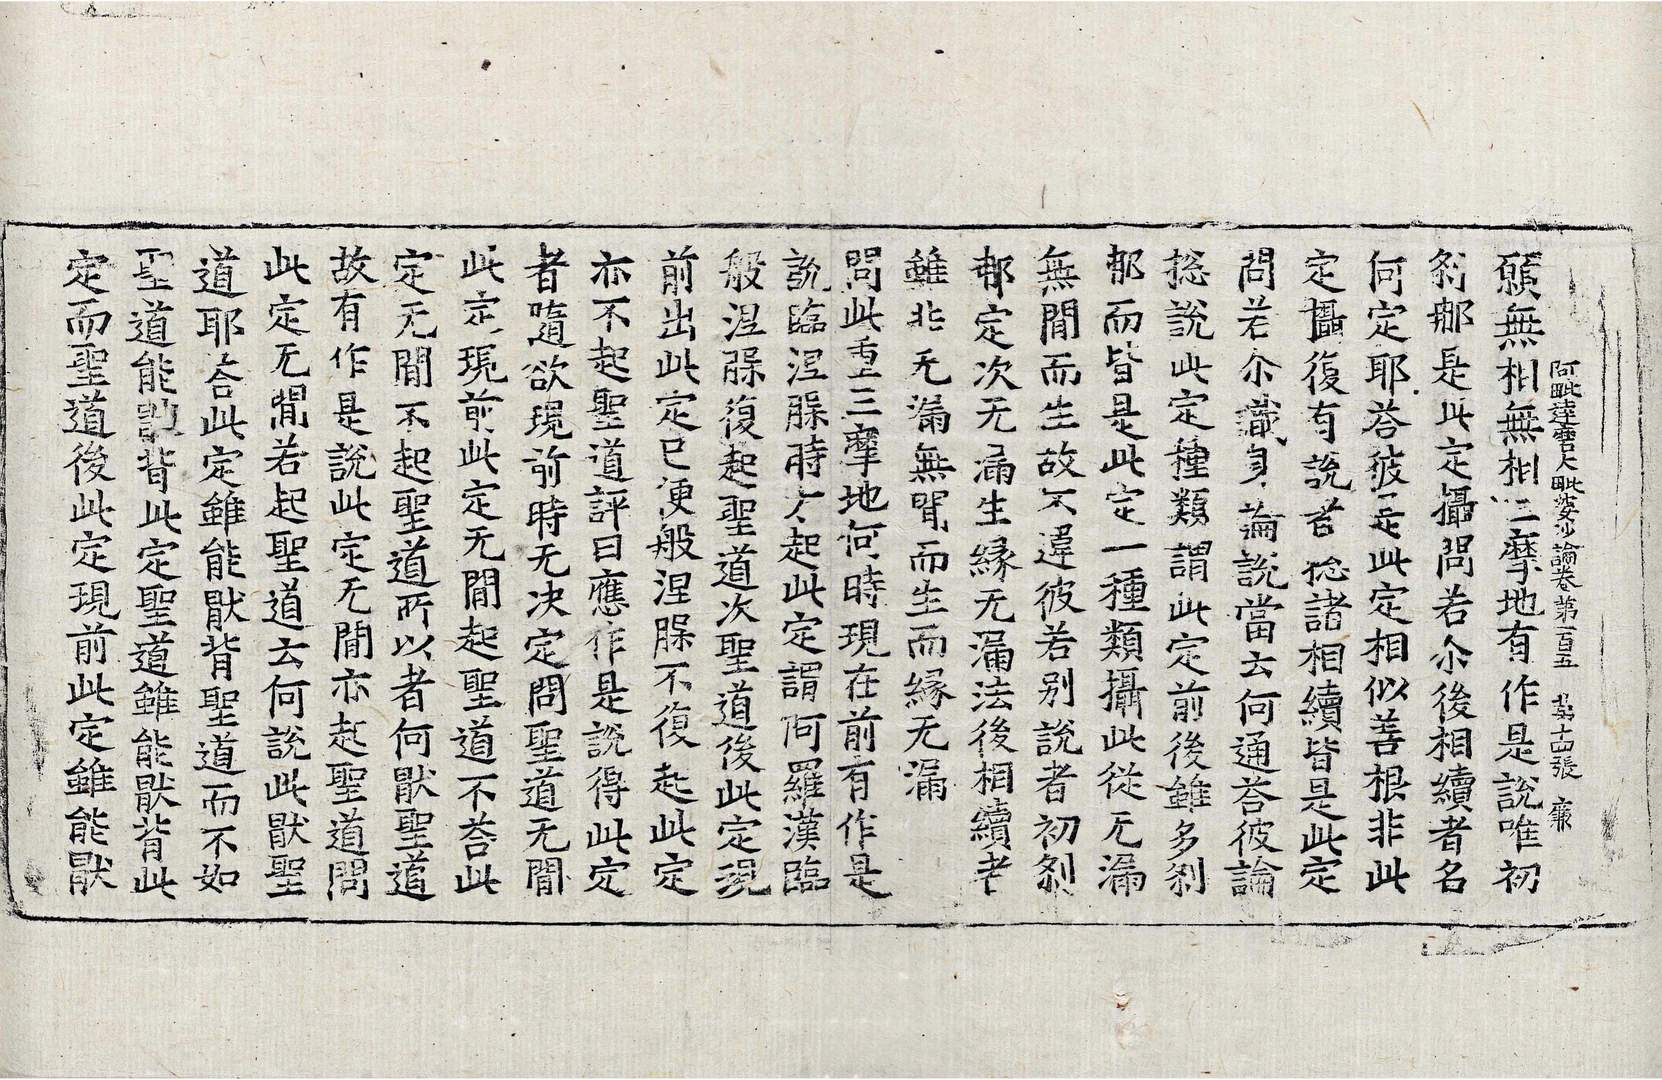 阿毗達磨大毗婆沙論卷第一百五　第十四張　廉
願無相無相三摩地有作是說唯初
剎那是此定攝問若尒後相續者名
何定耶荅彼是此定相似善根非此
定攝復有說者捴諸相續皆是此定
問若尒識身論說當云何通荅彼論
捴說此定種類謂此定前後雖多剎
那而皆是此定一種類攝此從无漏
無閒而生故不違彼若別說者初剎
那定次无漏生緣无漏法後相續者
雖非无漏無閒而生而緣无漏
問此重三摩地何時現在前有作是
說臨涅槃時方起此定謂阿羅漢臨
般涅槃復起聖道次聖道後此定現
前出此定已便般涅槃不復起此定
亦不起聖道評曰應作是說得此定
者隨欲現前時无決定問聖道无閒
此定現前此定无閒起聖道不荅此
定无閒不起聖道所以者何猒聖道
故有作是說此定无閒亦起聖道問
此定无閒若起聖道云何說此猒聖
道耶荅此定雖能猒背聖道而不如
聖道能訶背此定聖道雖能猒背此
定而聖道後此定現前此定雖能猒